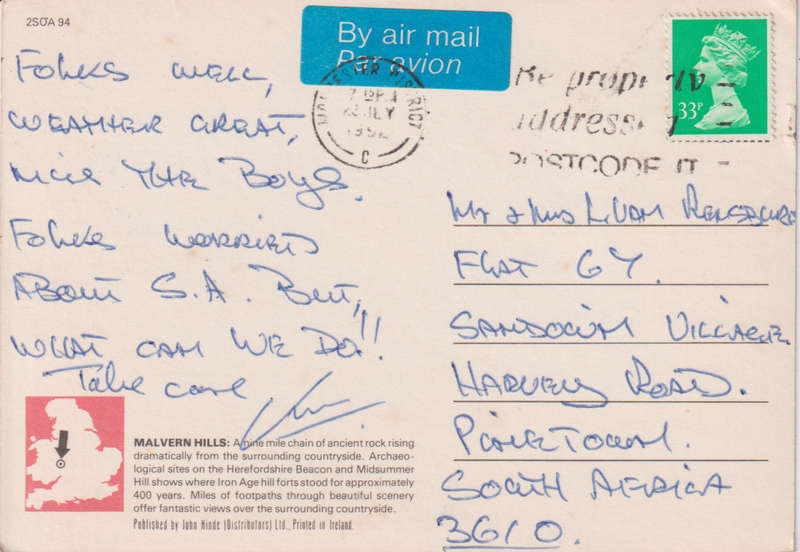 2SOA 94
By air mail
Par avion
MANCHESTER DISTRICT
JLY
C
Be properly
addressed
POSTCODE IT
33P
FOLKS WELL,
WEATHER GREAT,
THE BOYS.
FOLKS WORRIED
ABOUT S.A. BUT,
WHAT CAN WE DO!!
Take care
Mr & Mrs L. VAN RENSBURG
FLAT 67.
SANDOWN VILLAGE
HARVEY ROAD.
PINETOWN.
SOUTH AFRICA
3610.
MALVERN HILLS: A nine mile chain of ancient rock rising
dramatically from the surrounding countryside. Archaeo-
logical sites on the Herefordshire Beacon and Midsummer
Hill shows where Iron Age hill forts stood for approximately
400 years. Miles of footpaths through beautiful scenery
offer fantastic views over the surrounding countryside.
Published by John Hinde (Distributors) Ltd., Printed in Ireland.